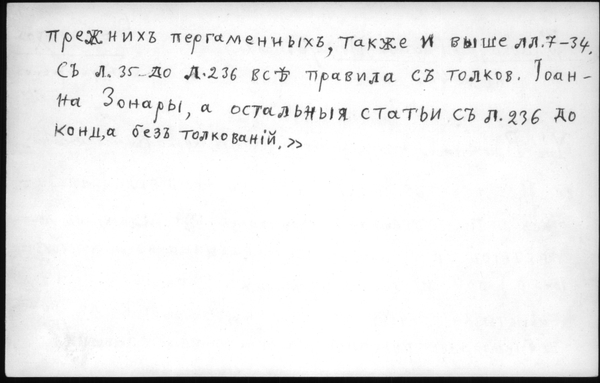 прежнихъ пергаменныхъ, также и выше лл. 7–34.
Съ л. 35–до л. 236 всѣ правила съ толков. Іоан-
на Зонары, а остальныя статьи съ л. 236 до
конца безъ толкованій.»